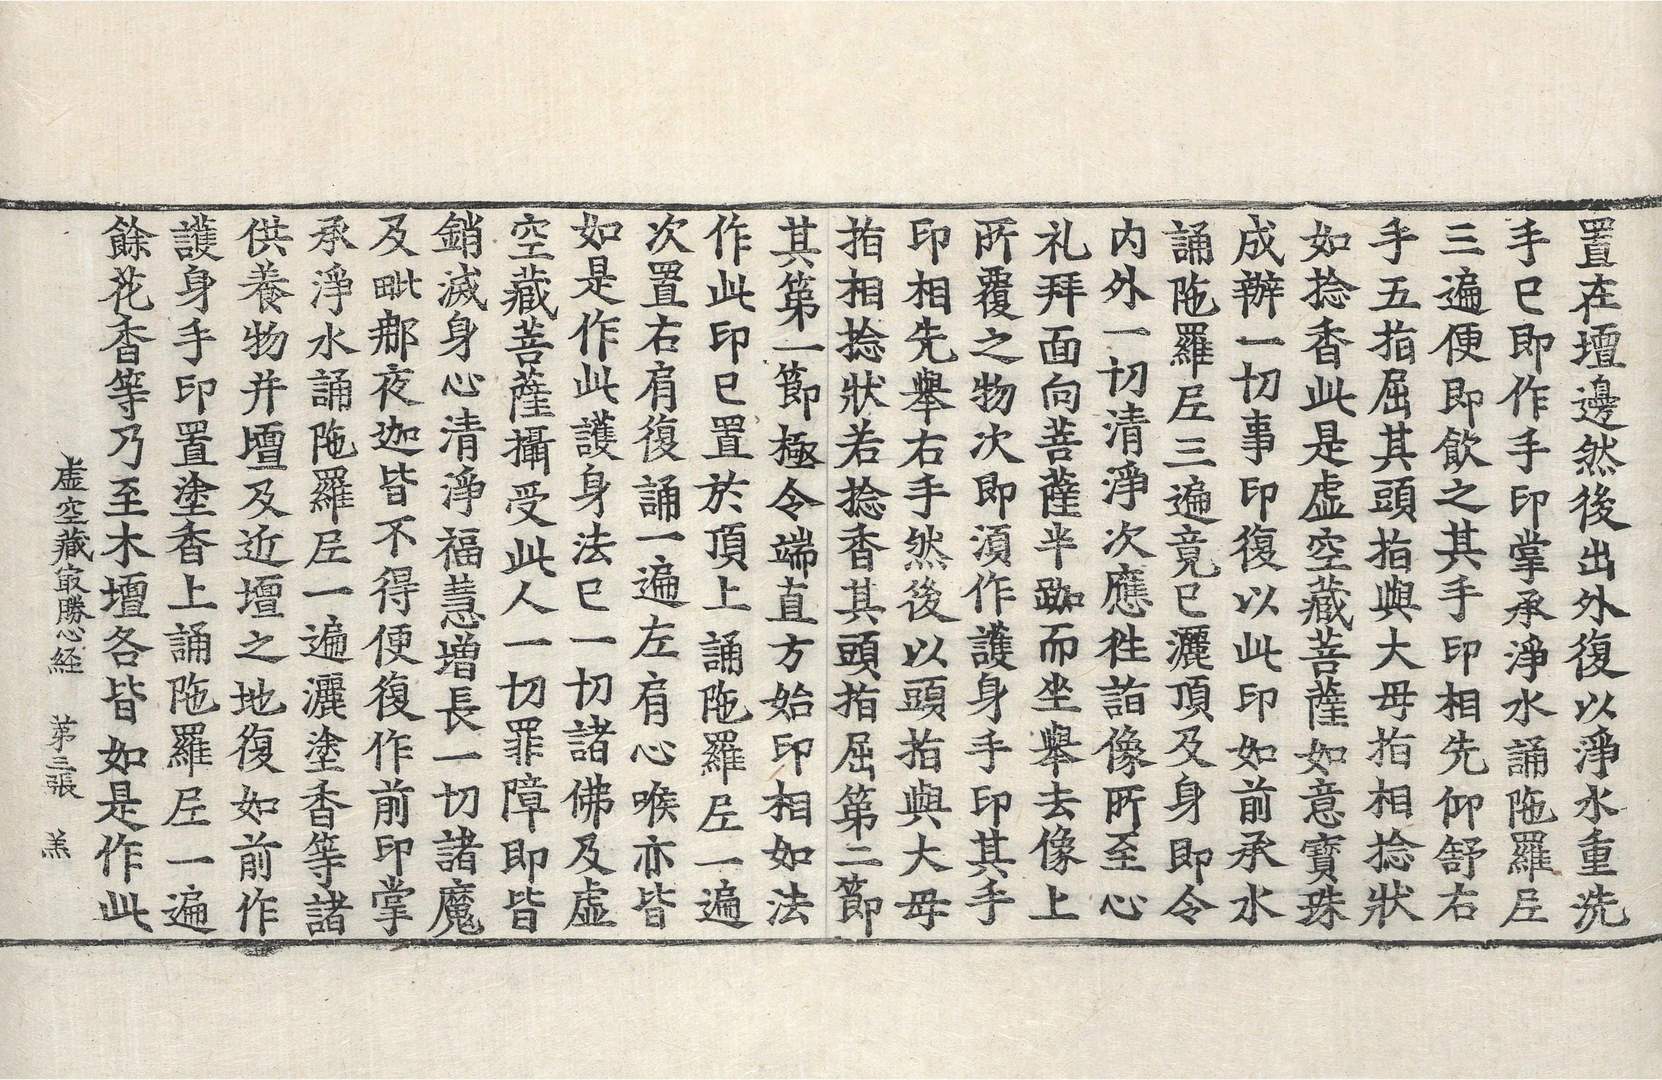 置在壇邊然後出外復以淨水重洗
手已即作手印掌承淨水誦陁羅𡰱
三遍便即飲之其手印相先仰舒右
手五指屈其頭指與大母指相捻狀
如捻香此是虛空藏菩薩如意寶珠
成辦一切事印復以此印如前承水
誦陁羅𡰱三遍竟已灑頂及身即令
內外一切清淨次應往詣像所至心
礼拜面向菩薩半跏而坐舉去像上
所覆之物次即湏作護身手印其手
印相先舉右手然後以頭指與大母
指相捻狀若捻香其頭指屈第二節
其第一節極令端直方始印相如法
作此印已置於頂上誦陁羅𡰱一遍
次置右肩復誦一遍左肩心喉亦皆
如是作此護身法已一切諸佛及虛
空藏菩薩攝受此人一切罪障即皆
銷滅身心清淨福慧增長一切諸魔
及毗那夜迦皆不得便復作前印掌
承淨水誦陁羅𡰱一遍灑塗香等諸
供養物并壇及近壇之地復如前作
護身手印置塗香上誦陁羅𡰱一遍
餘花香等乃至木壇各皆如是作此
虛空藏㝡勝心経　第三張　羔